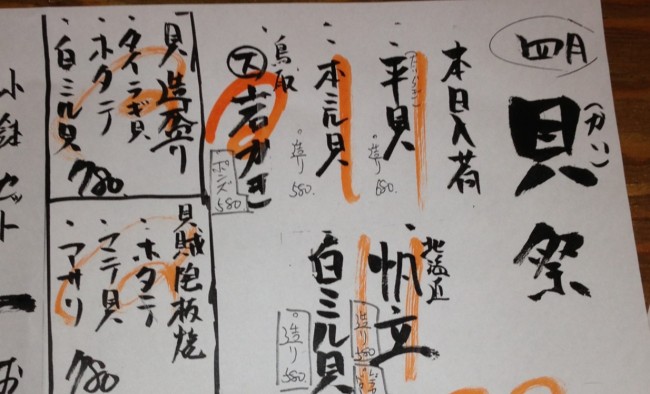 四月
貝祭
(かい)
本日入荷
・平貝
(タイラギ)
。造り 680.
・本ミル貝
。造り 580.
鳥取
大 岩がき
ポンズ 580
北海道
帆立
造り 580
・白ミル貝
。造り 580.
貝造盛り
・タイラギ貝
・ホタテ
・白ミル貝
780.
貝賊陶板焼
・ホタテ
・マテ貝
・アサリ
780
小鉢セット